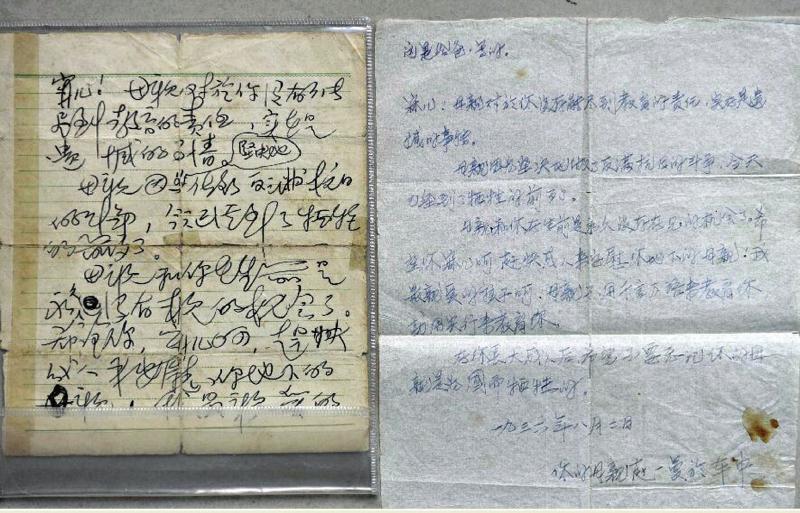 宁儿！母親对於你没有能
尽到教育的责任，实在是
遗憾的事情。坚决地
母親因为做了反满抗日
的斗争，今天已经到了牺牲
的前夕了。
母親和你在生前是
永久没有再見的机会了。
希望你，宁儿啊，赶快
成人，来安慰你地下的
母親！我最親爱的
宁儿：母親对於你没有能尽到教育的责任，实在是遗
憾的事情。
母親因为坚决地做了反满抗日的斗争，今天
已经到了牺牲的前夕了。
母親和你在生前是永久没有再見的机会了。希
望你宁儿啊赶快成人来安慰你地下的母親！我
最親爱的孩子啊，母親不用千言万语来教育你
就用实行来教育你。
在你长大成人后希望不要忘记你的母
親是为国而牺牲的。
一九三六年八月二日
你的母親赵一曼於车中